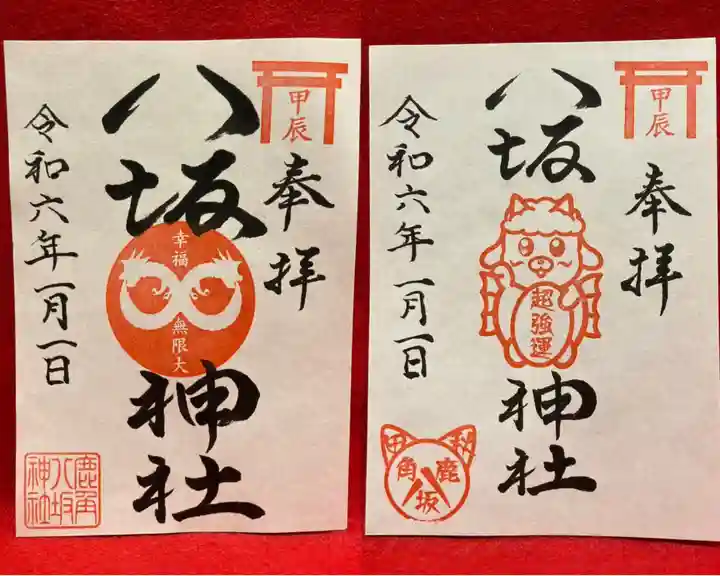 甲辰
奉拝
八坂神社
幸福
無限大
令和六年一月一日
鹿角
八坂
神社
甲辰
奉拝
八坂神社
超強運
令和六年一月一日
秋田
鹿角
八坂